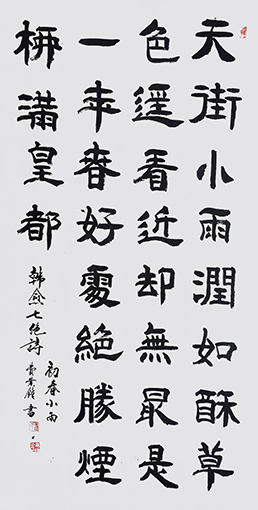 天街小雨潤如酥草
色遥看近却無最是
一年春好處絕勝煙
柳滿皇都
韓愈七绝詩
初春小雨
書